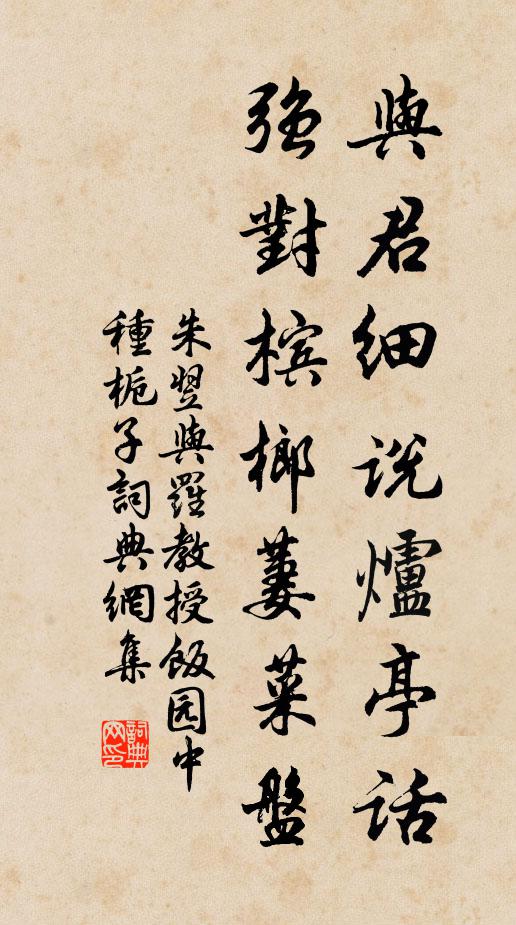 與君細説爐亭話
強對檳榔蔞菜盤
朱翌與羅教授飯园中
種栀子詞典網集
詞典
网印